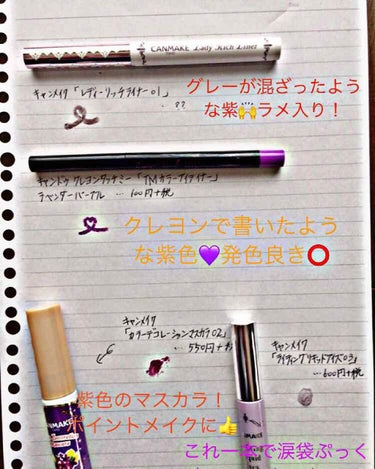 CANMAKE Lady Rich Liner
キャンメイク「レディーリッチライナー01」
… ??
グレーが混ざったよう
な紫🙌ラメ入り！
キャンドゥ クレヨンタッチミー「TMカラーアイライナー」
ラベンダーパープル … 100円+税
クレヨンで書いたよう
な紫色💜発色良き⭕
キャンメイク
「カラーデコレーションマスカラ02」
… 550円+税
キャンメイク
「ライティングリキッドアイズ03」
… 600円+税
紫色のマスカラ！
ポイントメイクに👍
CANMAKE
これ一本で涙袋ぷっく